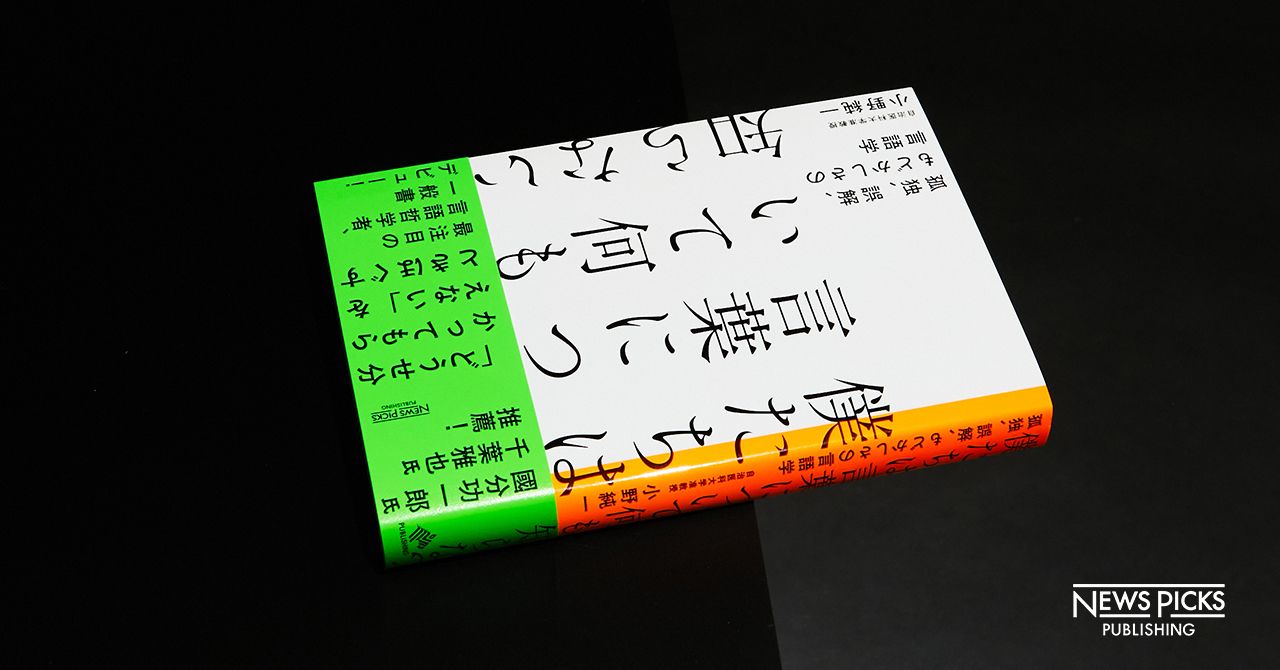 僕たちは
言葉につ
いて何も
知らない
孤独、誤解、
もどかしさの
言語学
自治医科大学准教授
小野純一
國分功一郎氏
千葉雅也氏
推薦!
NEWS PICKS
PUBLISHING
「どうせ分
かってもら
えない」を
ときほぐす
最注目の
言語哲学者、
一般書
デビュー!
僕たちは言葉について何も知らない
孤独、誤解、もどかしさの言語学
自治医科大学准教授
小野純一
PUBLISHING
NEWS PICKS
PUBLISHING